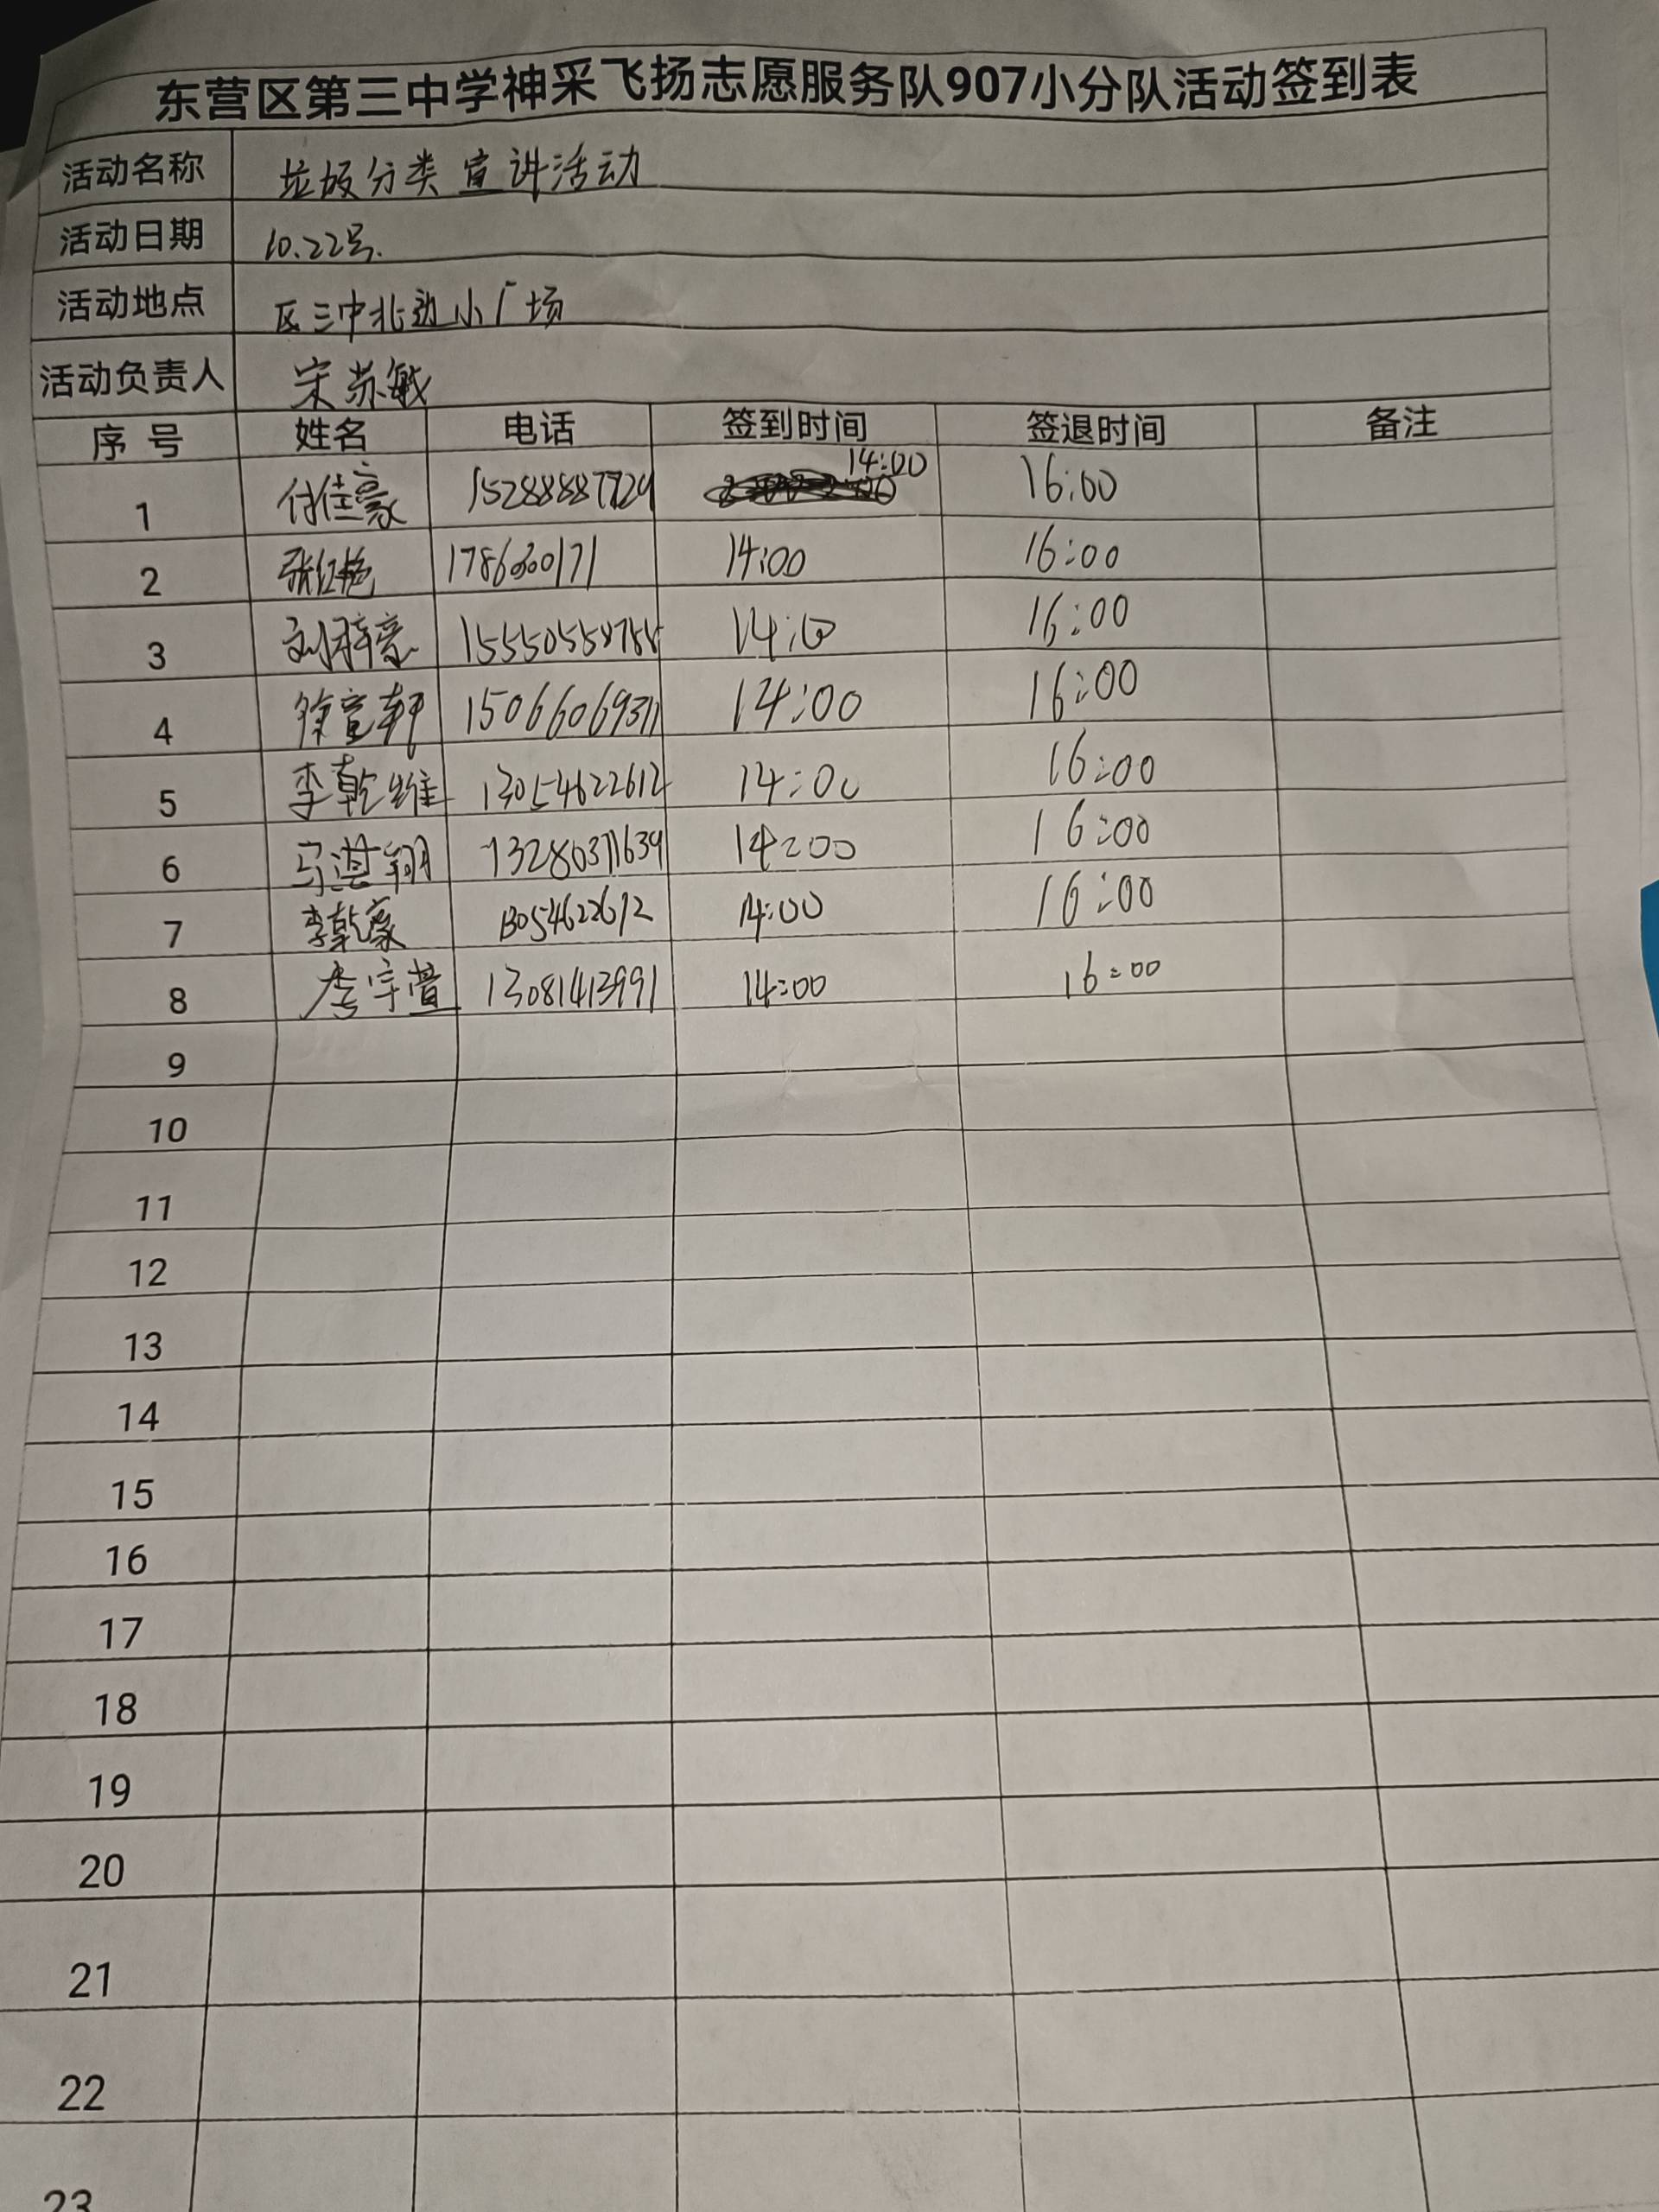 东营区第三中学神采飞扬志愿服务队907小分队活动签到表
活动名称 垃圾分类宣讲活动
活动日期 10.22号.
活动地点 区三中北边小广场
活动负责人 宋苏敏
序号 姓名 电话 签到时间 签退时间 备注
1 付佳豪 14:00 16:00
2 张红艳 14:00 16:00
3 16:00
4 徐宣轩 15066069311 14:00 16:00
5 李乾维 13054622612 14:00 16:00
6 马淇翔 13280371639 14:00 16:00
7 李乾豪 13054622612 14:00 16:00
8 李宇萱 13081413991 14:00 16:00
9
10
11
12
13
14
15
16
17
18
19
20
21
22
23